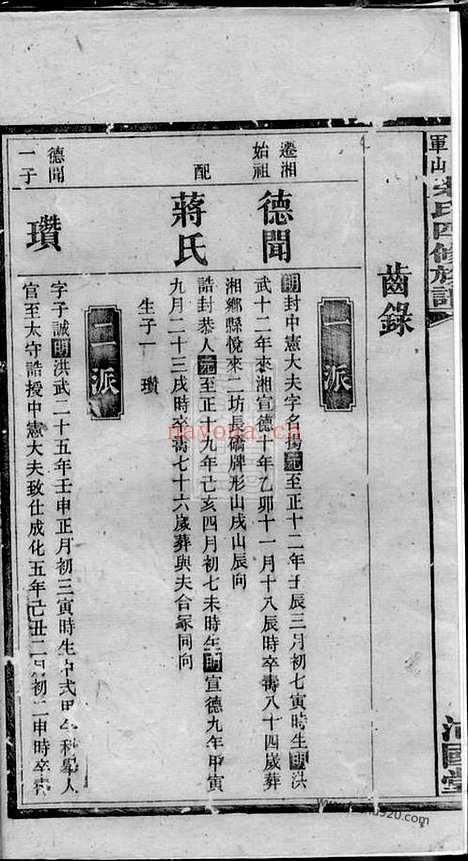 軍山
氏四修族譜
齒錄
一派
遷湘始祖
德聞
明封中憲大夫字名揚元至正十二年壬辰三月初七寅時生明洪
武十二年來湘宣德十年乙卯十一月十八辰時卒壽八十四歲葬
湘鄉縣悅來二坊長橋牌形山戌山辰向
配
蔣氏
誥封恭人元至正十九年己亥四月初七未時生明宣德九年甲寅
九月二十三戌時卒壽七十六歲葬與夫合冢同向
生子一 瓚
二派
德聞一子
瓚
字子誠明洪武二十五年壬申正月初三寅時生中式甲午科舉人
官至太守誥授中憲大夫致仕成化五年己丑二月初二申時卒壽
nayona.cn